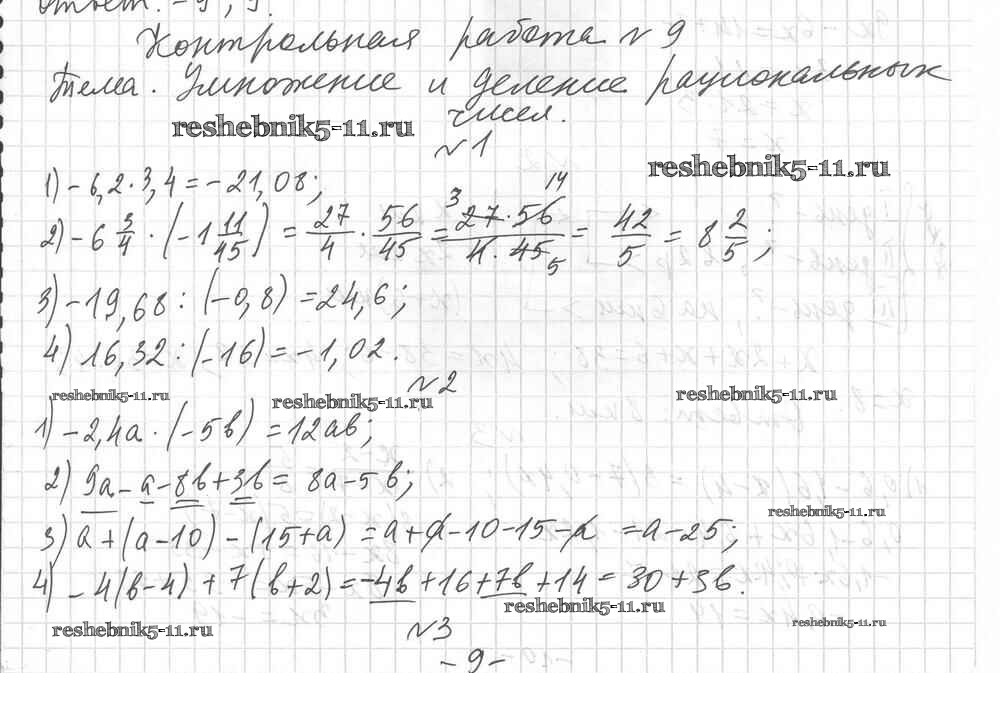 Ответ: -9; 9.
Контрольная работа №9
Тема. Умножение и деление рациональных
чисел.
reshebnik5-11.ru
№1
reshebnik5-11.ru
1) -6,2·3,4=-21,08;
2) -6 3/4 · (-1 11/45) = 27/4 · 56/45 = 27·56/4·45 = 42/5 = 8 2/5;
3) -19,68 : (-0,8) = 24,6;
4) 16,32 : (-16) = -1,02.
№2
reshebnik5-11.ru
reshebnik5-11.ru
reshebnik5-11.ru
1) -2,4a · (-5b) = 12ab;
2) 9a - a - 8b + 3b = 8a - 5b;
reshebnik5-11.ru
3) a + (a-10) - (15+a) = a+a-10-15-a = a-25;
4) -4(b-4) + 7(b+2) = -4b+16+7b+14 = 30+3b.
reshebnik5-11.ru
reshebnik5-11.ru
reshebnik5-11.ru
№3
-9-